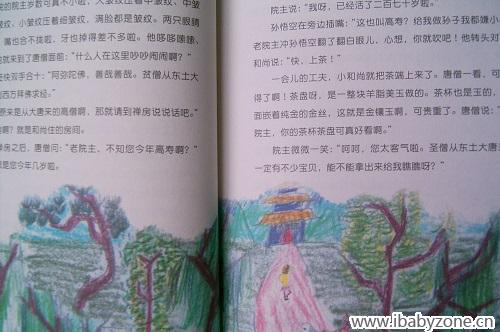 的院主岁数可真不小啦，大皱纹压着中皱纹、中皱
纹、小皱纹压着细皱纹，满脸都是皱纹。两只眼睛
嘴也合不拢啦，牙也掉得差不多啦。他哆哆嗦嗦、
他就来到了唐僧面前："什么人在这里吵吵闹闹啊？"
赶快双手合十："阿弥陀佛，善哉善哉。贫僧从东土大
西方拜佛求经。"
原来是从大唐来的高僧啊，那就请到禅房说说话吧。"
啊？就是和尚住的房间。
禅房之后，唐僧问："老院主，不知您今年高寿啊？"
是您今年几岁啦。
院主说："我呀，已经活了二百七十岁啦。"
孙悟空在旁边插嘴："这也叫高寿？给我做孙子我都嫌小
老院主冲孙悟空翻了翻白眼儿，心想，你就吹吧！他转头对
和尚说："快，上茶！"
一会儿的工夫，小和尚就把茶端上来了。唐僧一看，可
得了啊！茶盘呀，是一整块羊脂美玉做的。茶杯也是玉的，
面嵌着纯金的金丝，这就是金镶玉啊，可贵重了。唐僧说：
院主，你的茶杯茶盘可真好看啊。"
院主微微一笑："呵呵，您太客气啦。圣僧从东土大唐
一定有不少宝贝，能不能拿出来给我瞧瞧呀？"
www.ibabyzone.cn